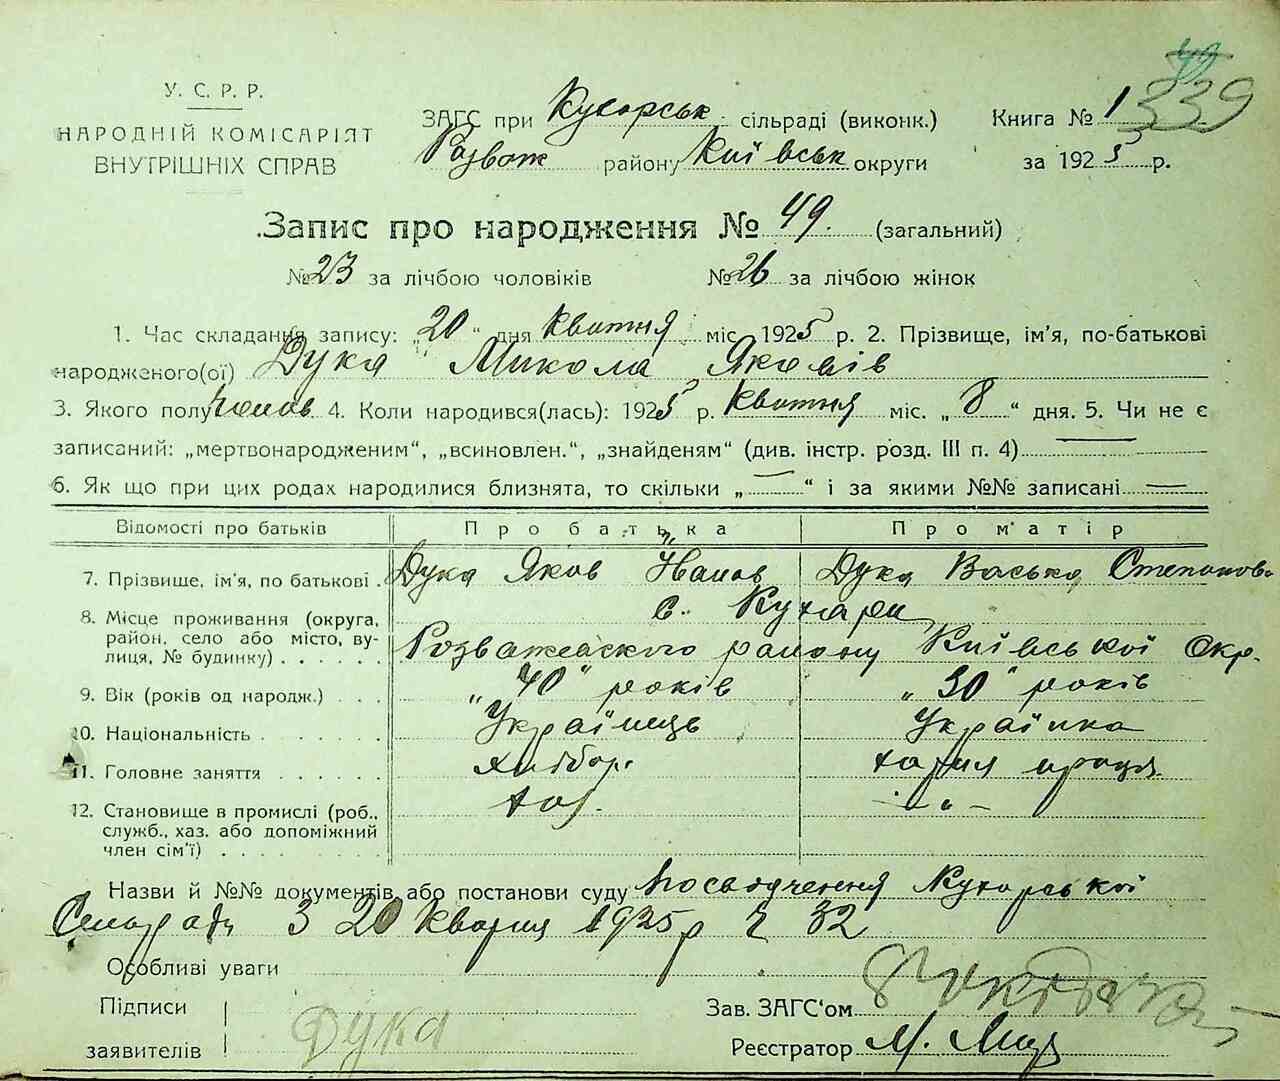 49
339
У. С. Р. Р.
НАРОДНІЙ КОМІСАРІЯТ
ВНУТРІШНІХ СПРАВ
ЗАГС при Кухарськ. сільраді (виконк.)
Розваж району Київськ округи
Книга № 1
за 1925 р.
Запис про народження № 49. (загальний)
№ 23 за лічбою чоловіків № 26 за лічбою жінок
1. Час складання запису: „20“ дня Квітня міс. 1925 р. 2. Прізвище, ім'я, по-батькові
народженого(ої) Дука Микола Яковів
3. Якого полу Чолов 4. Коли народився(лась): 1925 р. Квітня міс. „8“ дня. 5. Чи не є
записаний: „мертвонародженим“, „всиновлен.“, „знайденям“ (див. інстр. розд. III п. 4) —
6. Як що при цих родах народилися близнята, то скільки „—“ і за якими №№ записані —
Відомості про батьків Про батька Про матір
7. Прізвище, ім'я, по батькові . Дука Яков Іванов Дука Васька Степанов
8. Місце проживання (округа, район, село або місто, вулиця, № будинку) . . . . . . с. Кухари
Розважевского району Київської Окр.
9. Вік (років од народж.) . . . „40“ років „30“ років
10. Національність . . . . . . Українець Українка
11. Головне заняття . . . . . . Хлібор. праця
12. Становище в промислі (роб., служб., хаз. або допоміжний член сім'ї) . . . . . . . . . . хаз. - „ -
Назви й №№ документів або постанови суду Посвідчення Кухарської
Сільради З 20 Квітня 1925 р ч 32
Особливі уваги
Підписи
заявителів
Дука
Зав. ЗАГС'ом
Реєстратор М.